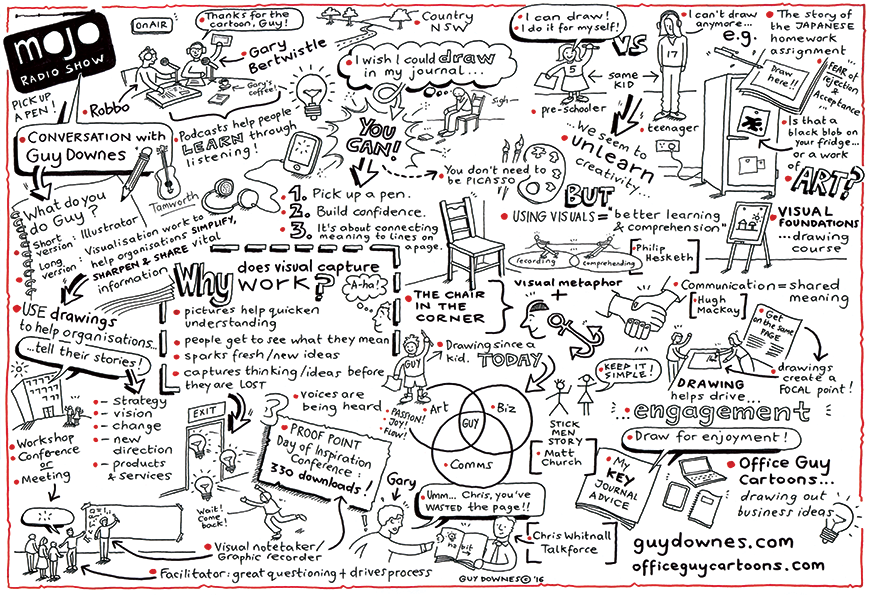 mojo
RADIO SHOW
ON AIR
Thanks for the
cartoon, Guy!
Gary
Bertwistle
Robbo
Gary's
coffee!
PICK UP
A PEN!
CONVERSATION with
Guy Downes
Podcasts help people
LEARN through
listening!
Country
NSW
I wish I could draw
in my journal...
Sigh
YOU
CAN!
I can draw!
I do it for myself!
VS
I can't draw
anymore...
e.g.
5
17
same
KID
pre-schooler
teenager
We seem to
unlearn
creativity...
The story of
the JAPANESE
homework
assignment
Draw
here!!
FEAR of
rejection
&
Acceptance
Is that a
black blob on
your fridge...
or a work
of ART?
You don't need to
be PICASSO
1. Pick up a pen.
2. Build confidence.
3. It's about connecting
meaning to lines on
a page.
What do you
do Guy?
Short
version: Illustrator
Long
version: Visualisation work to
help organisations SIMPLIFY,
SHARPEN & SHARE vital
information
Tamworth
BUT
USING VISUALS = "better learning
& comprehension"
recording
comprehending
Philip
Hesketh
VISUAL
FOUNDATIONS
...drawing
course
Why does visual capture
WORK?
pictures help quicken
understanding
people get to see what they mean
sparks fresh/new ideas
captures thinking/ideas before
they are LOST
A-ha!
THE CHAIR
IN THE
CORNER
visual metaphor
+
Communication = shared
meaning
Hugh
Mackay
Get
on the same
PAGE
DRAWING
helps drive...
drawings
create a
FOCAL point!
...engagement
USE drawings
to help organisations...
...tell their stories!
- strategy
- vision
- change
- new
direction
- products
& services
Workshop
Conference
or
Meeting
EXIT
Wait!
Come
back!
voices are
being heard
?
PROOF POINT
Day of Inspiration
Conference:
330 downloads!
Drawing since a
kid. TODAY
GUY
PASSION!
JOY!
FLOW!
Art
Biz
GUY
Comms
KEEP IT
SIMPLE!
STICK
MEN
STORY
Matt
Church
Draw for enjoyment!
My
KEY
JOURNAL
ADVICE
Office Guy
Cartoons...
drawing out
business ideas
Gary
Umm... Chris, you've
WASTED the page!!
no
bit
Chris Whitnall
Talkforce
Visual notetaker/
Graphic recorder
Facilitator: great questioning + drives process
guydownes.com
officeguycartoons.com
GUY DOWNES © '16